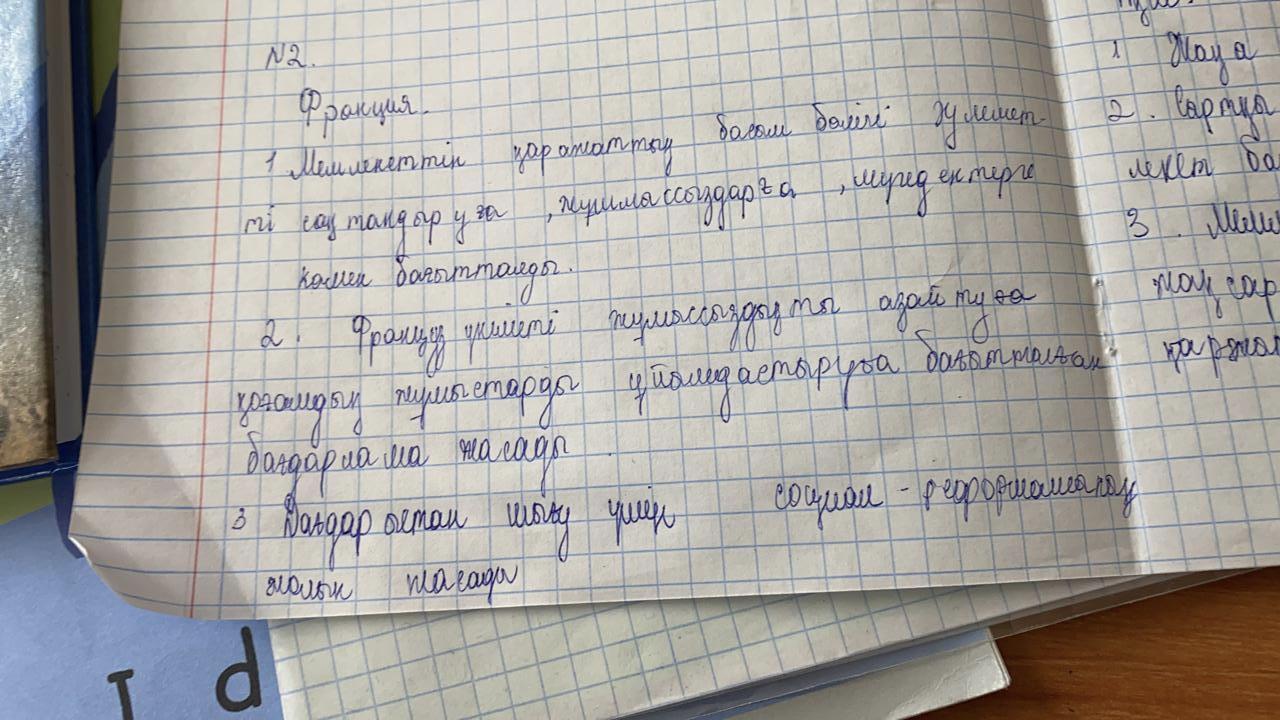 №2.
Франция.
1 Мемлекеттін қаражаттың басым бөлігі әулемет-
ті сақтандыруға, жұмыссыздарға, мүгедектерге
көмек бағытталды.
2. Француз үкіметі жұмыссыздықты азайтуға
қоғамдық жұмыстарды ұйымдастыруға бағытталған
бағдарлама жасады
3 Дағдарыстан шығу үшін социал-реформашылық
жолын жасады
1 Жаңа
2. Сартқы
лекет ба
3. Мем
жақсар
қаржы
I d